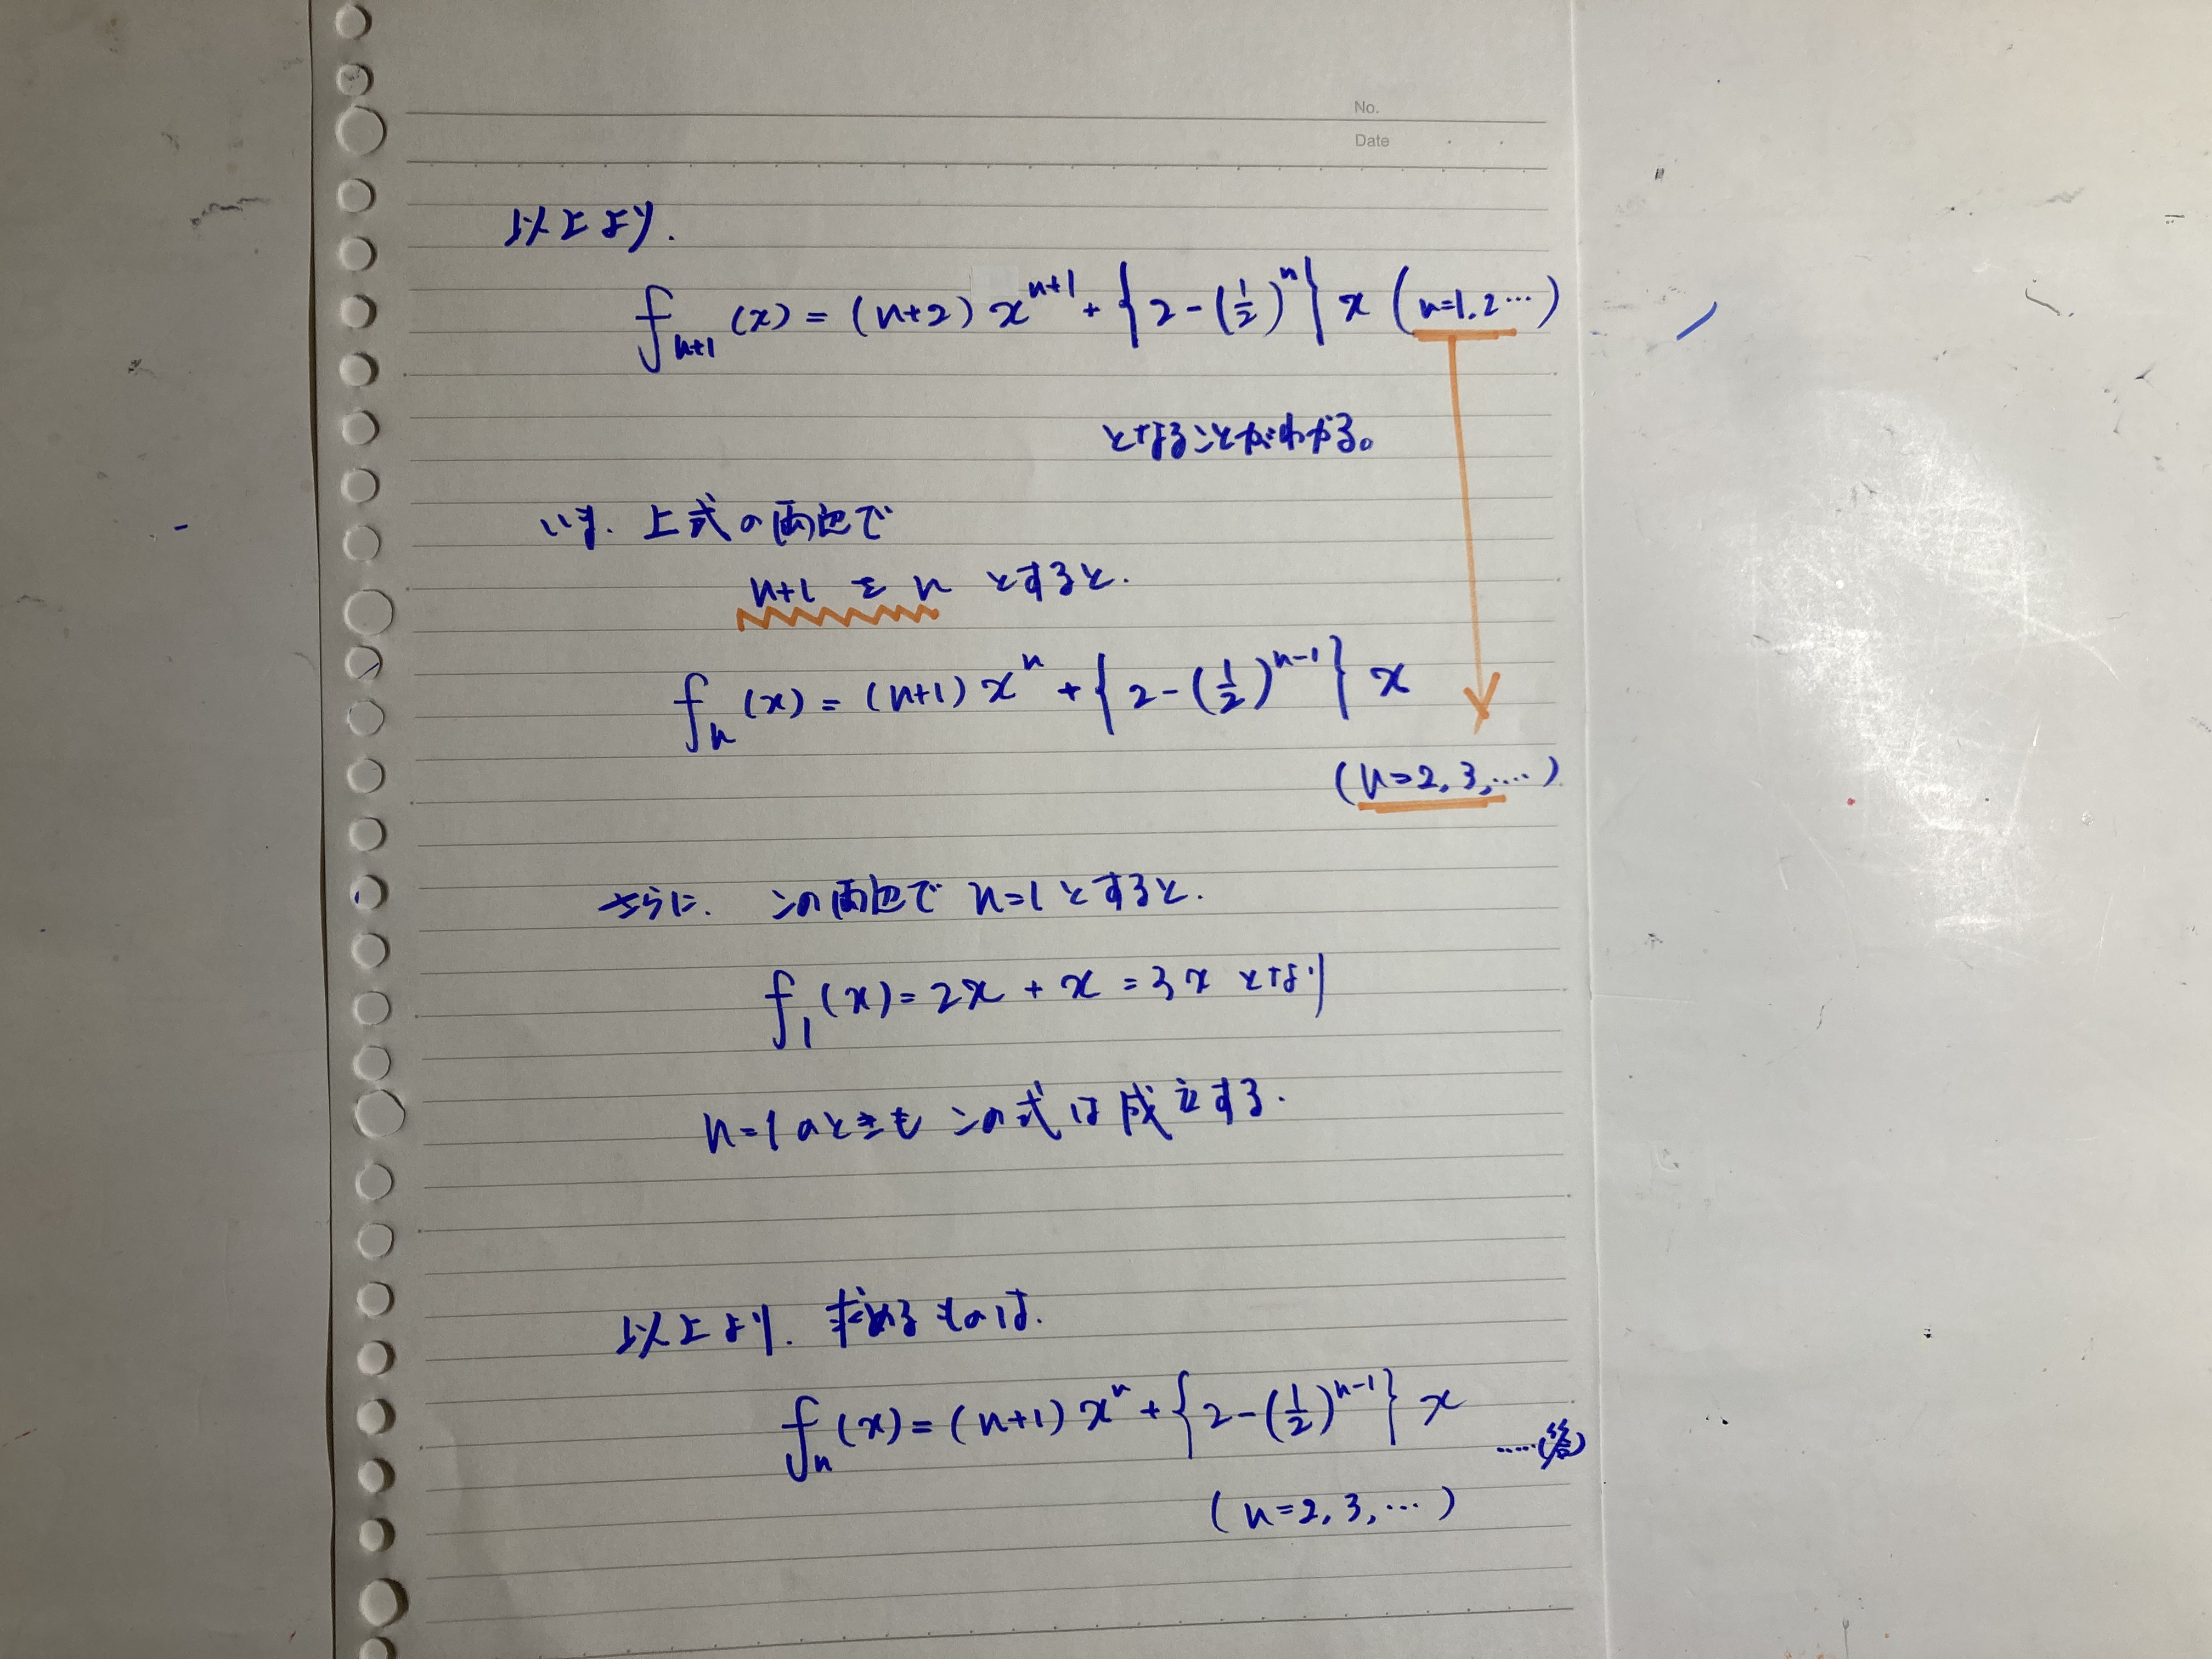 No.
Date
以上より.
f_{n+1}(x) = (n+2)x^{n+1} + {2-(1/2)^n}x (n=1,2…)
となることがわかる。
いま. 上式の両辺で
n+1 を n とすると.
f_n(x) = (n+1)x^n + {2-(1/2)^{n-1}}x
(n=2,3,….)
さらに. この両辺で n=1とすると.
f_1(x) = 2x + x = 3x となり
n=1のときも この式は成立する.
以上より. 求めるものは.
f_n(x) = (n+1)x^n + {2-(1/2)^{n-1}}x
……(答)
(n=2,3,…)